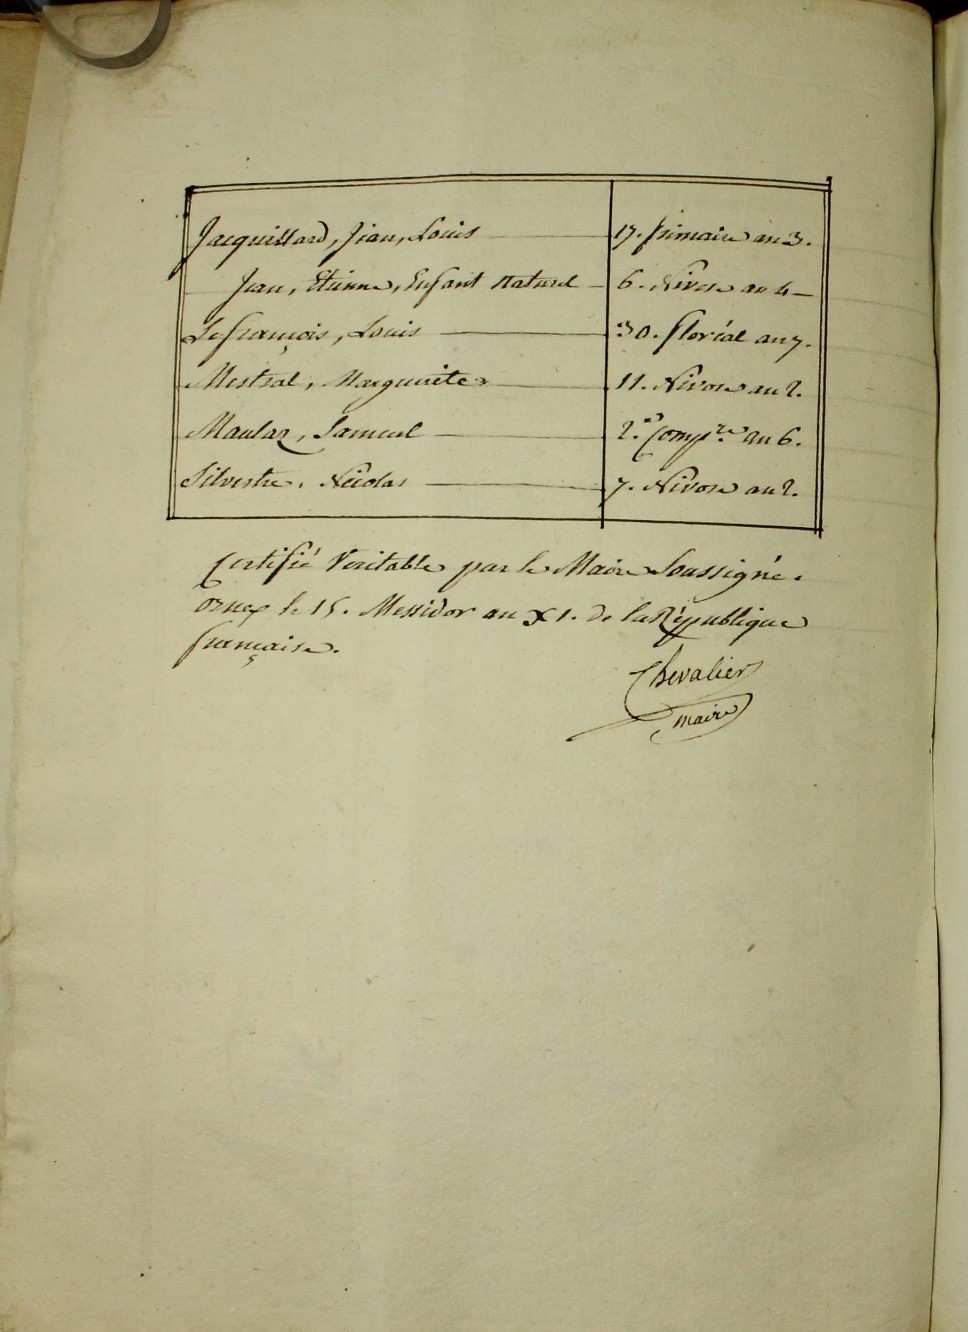 Jacquillard, Jean, Louis 17. frimaire an 3.
Jean, Etienne, Enfant Naturel 6. Nivose an 4
Lefrançois, Louis 30. floréal an 7.
Mestral, Marguerite 11. Nivose an 2.
Maulaz, Samuel 2.e Comp.re an 6.
Silvestre, Nicolas 7. Nivose an 2.
Certifié Veritable par le Maire Soussigné.
ornex le 15. Messidor an X1. de la République
française.
Chevalier
maire